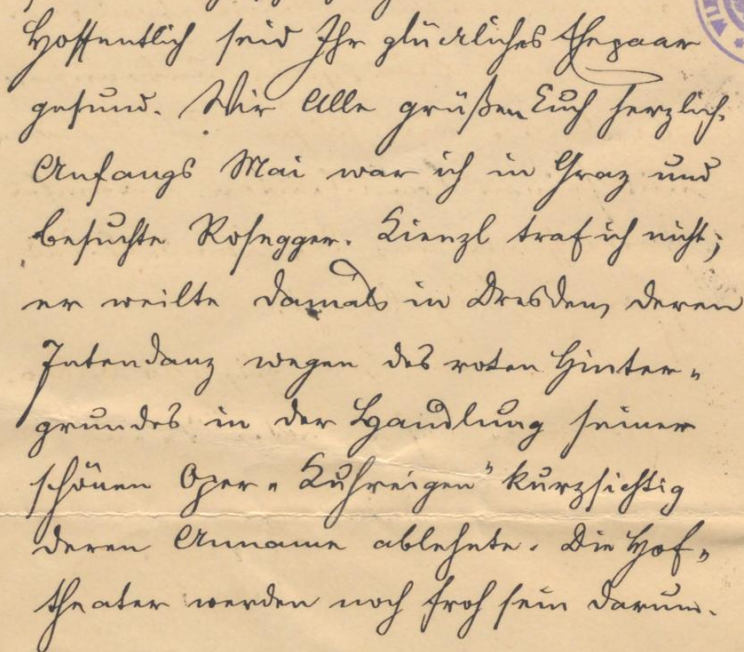 Hoffentlich seid Ihr glückliches Ehepaar
gesund. Wir Alle grüßen Euch herzlich.
Anfangs Mai war ich in Graz und
besuchte Rosegger. Kienzl traf ich nicht;
er weilte damals in Dresden, deren
Intendanz wegen des roten Hinter-
grundes in der Handlung seiner
schönen Oper „Kuhreigen" kurzsichtig
deren Anname ablehnte. Die Hof-
theater werden noch froh sein darum.